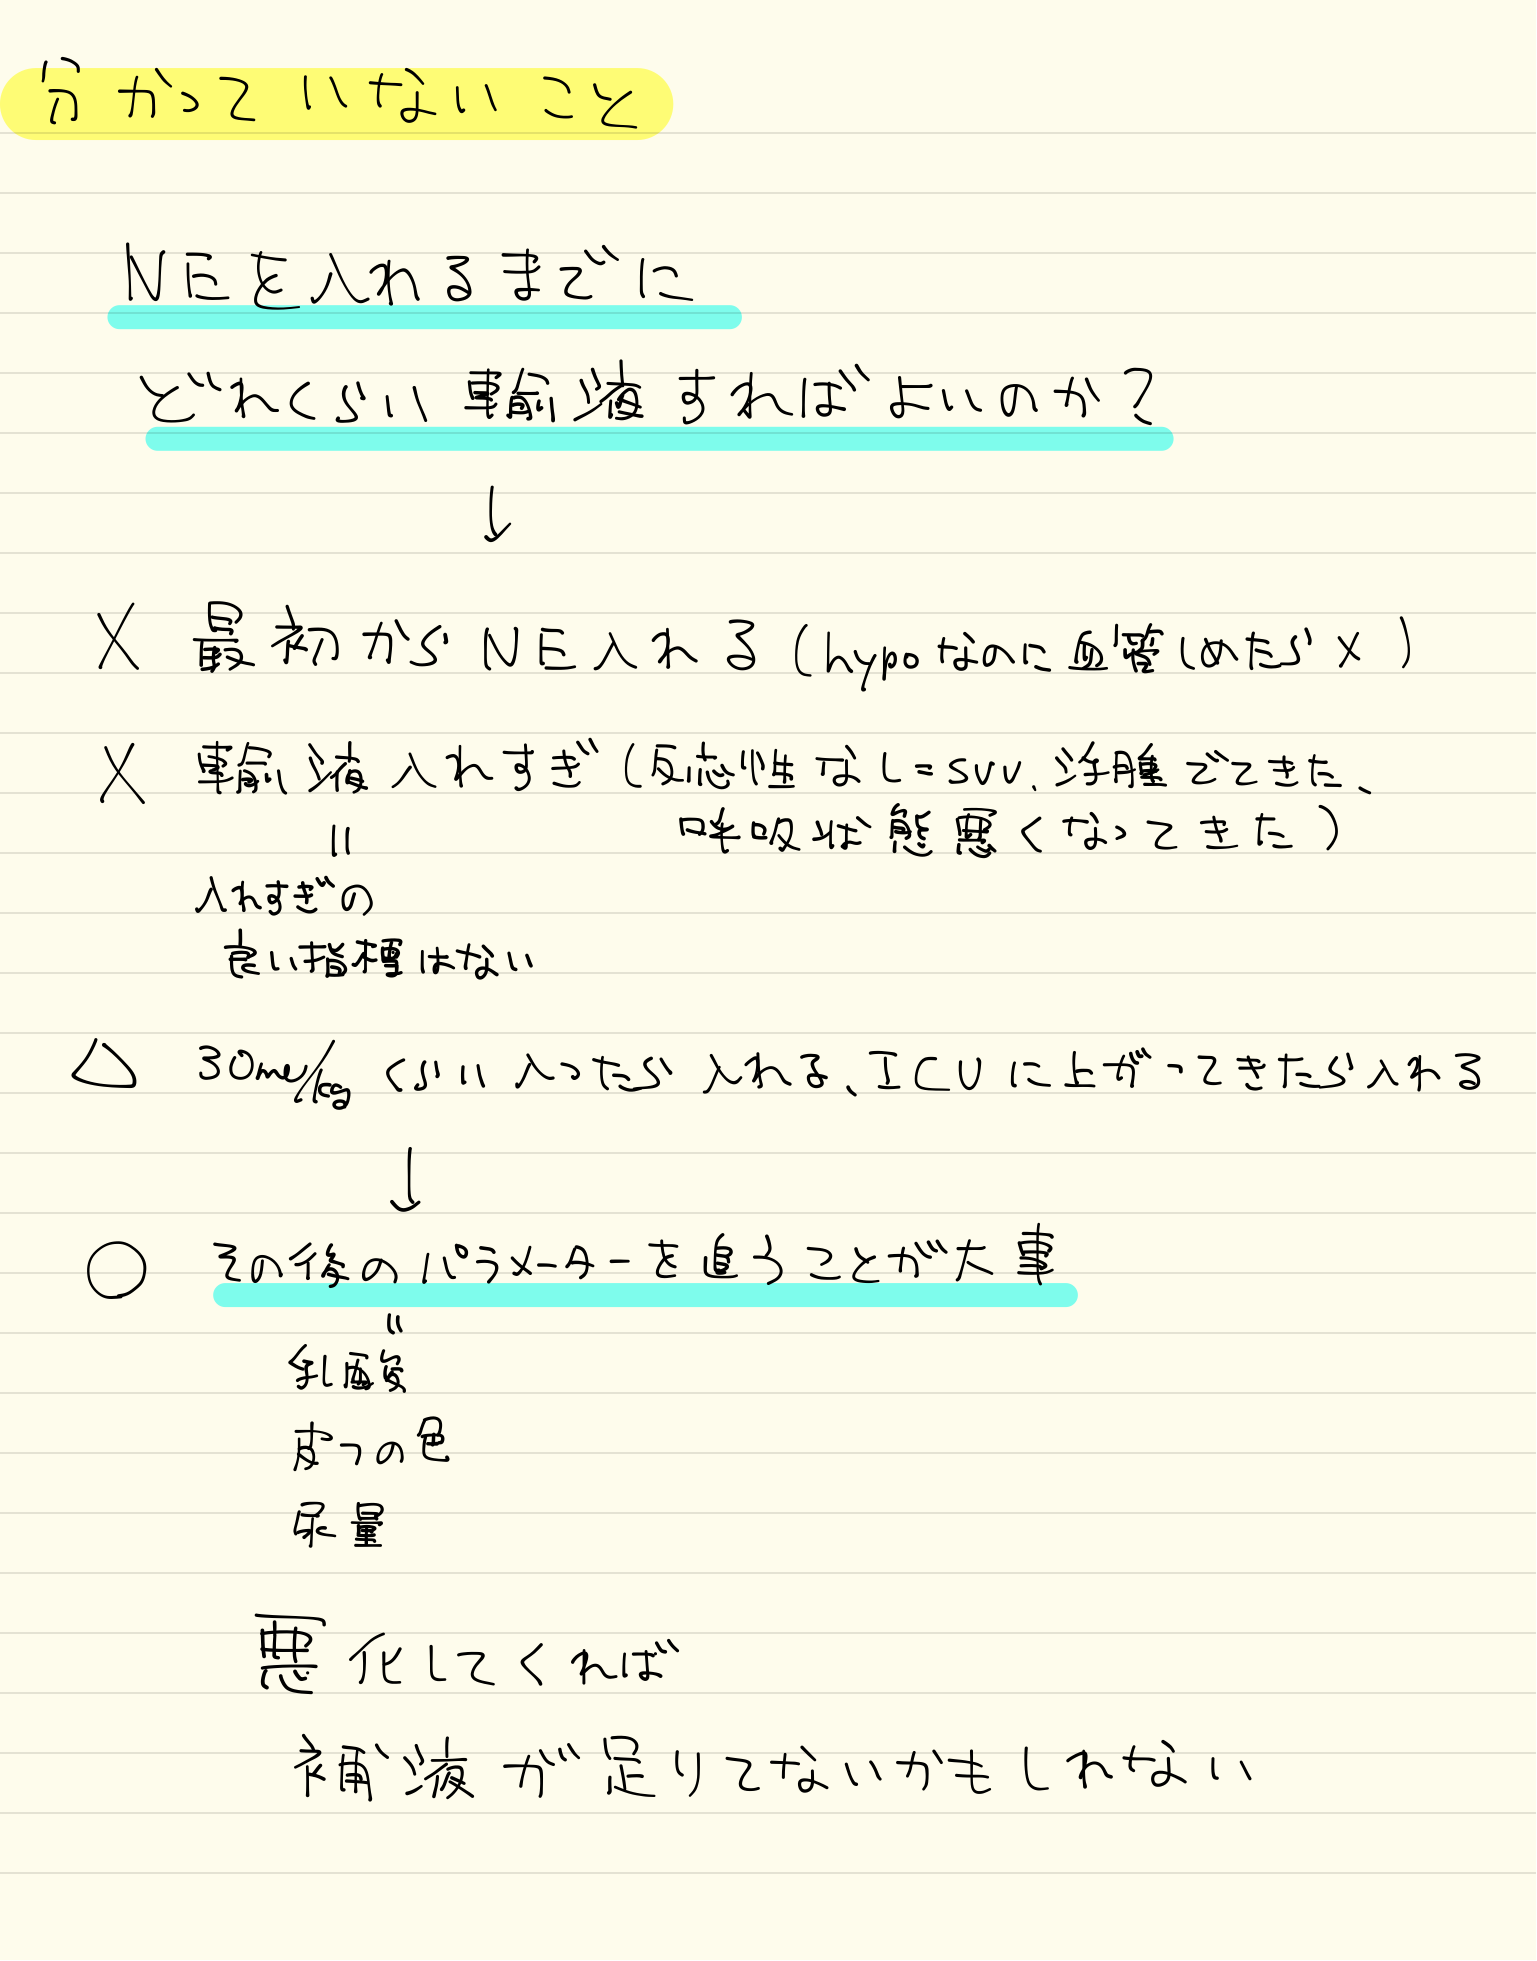 分かっていないこと
NEを入れるまでに
どれくらい輸液すればよいのか?
↓
× 最初からNE入れる(hypoなのに血管しめたら×)
× 輸液入れすぎ(反応性なし=SVV、浮腫でてきた、
呼吸状態悪くなってきた)
=
入れすぎの
良い指標はない
△ 30ml/kgくらい入ったら入れる、ICUに上がってきたら入れる
↓
○ その後のパラメーターを追うことが大事
=
乳酸
皮フの色
尿量
悪化してくれば
補液が足りてないかもしれない